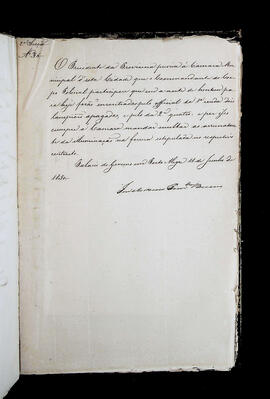 2ª Secção
O Presidente da Provincia previne á Camara Mu-
nicipal d'esta Cidade que o Commandante do Cor-
po Policial participou que de ante-hontem pa-
ra hoje forão encontrados pelo official da 1ª ronda dois
lampiões apagados, e pelo da 2ª quatro; e por isso
cumpre á Camara mandar multar ao arrematan-
te da illuminação na forma estipulada no respectivo
contracto.
Palacio do Governo em Porto Alegre de Junho de